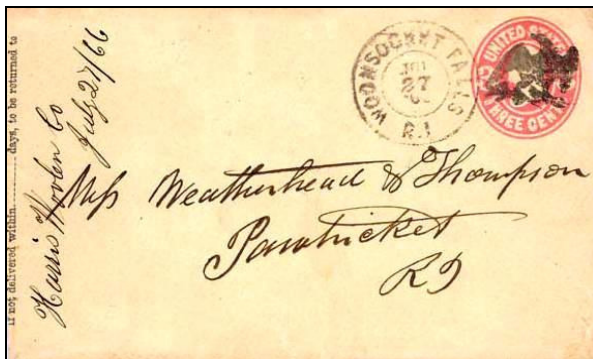 If not delivered within ........ days, to be returned to
Harris Woolen Co
July 27/66
WOONSOCKET FALLS
JUL
27
R.I
UNITED STATES
THREE CENTS
Mess Weatherhead & Thompson
Pawtucket
RI